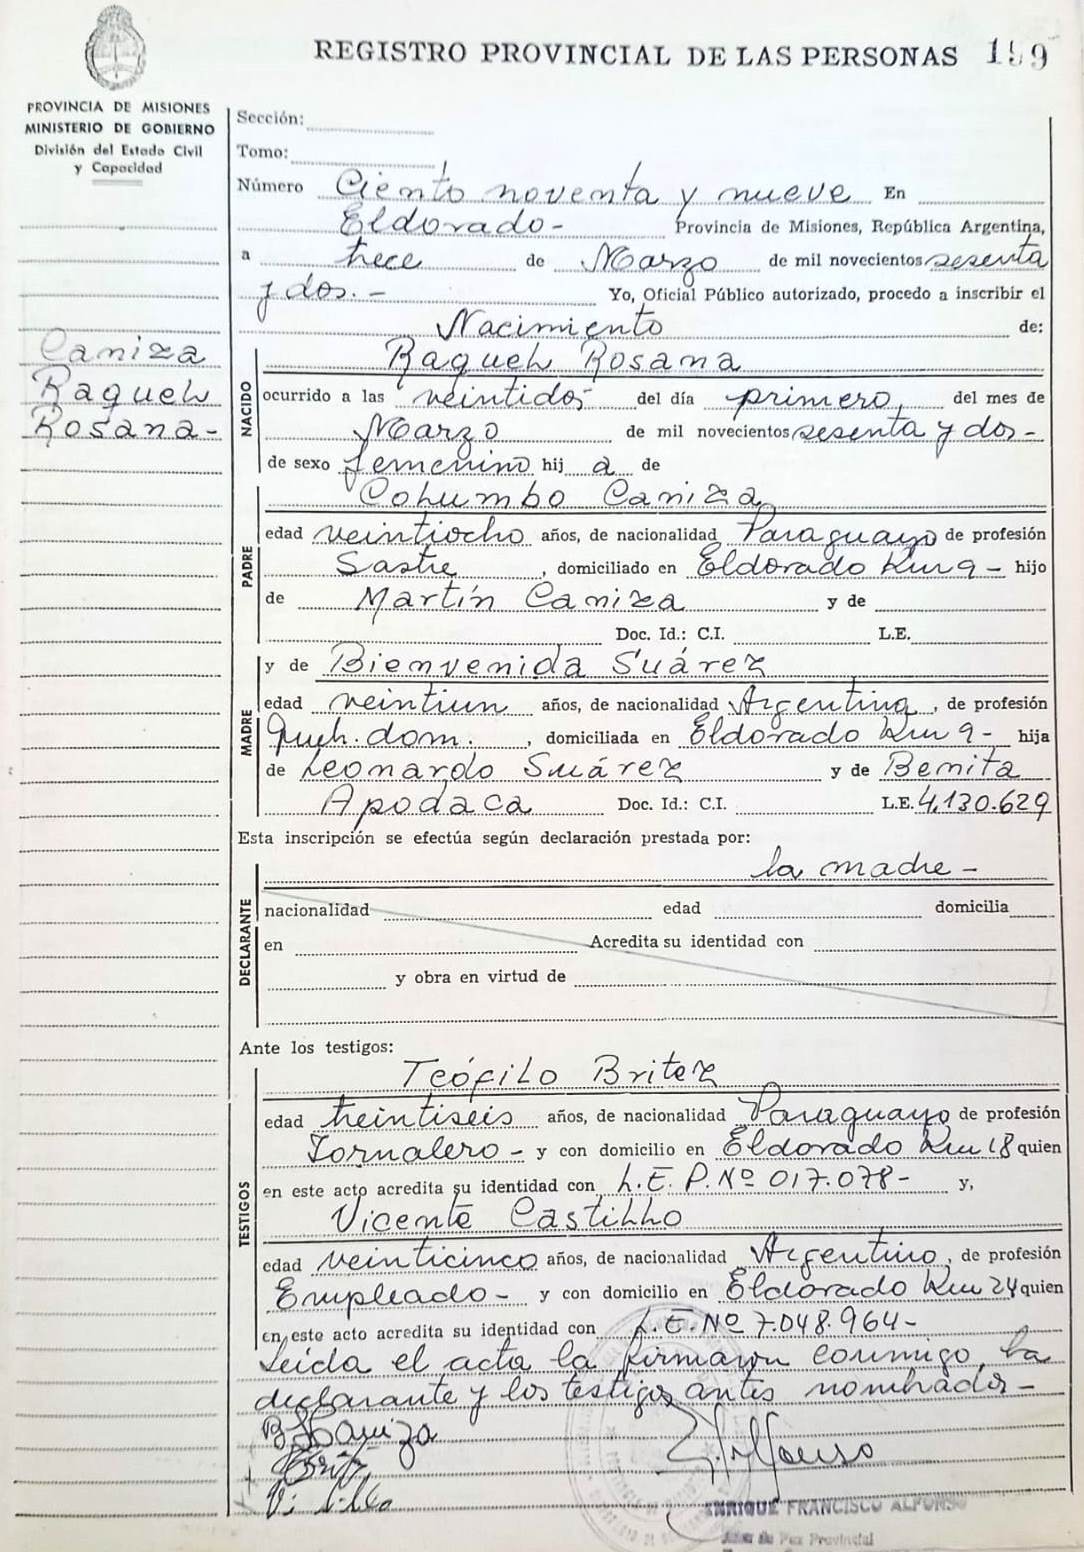 REGISTRO PROVINCIAL DE LAS PERSONAS 199
PROVINCIA DE MISIONES
MINISTERIO DE GOBIERNO
División del Estado Civil
y Capacidad
Caniza
Raquel
Rosana-
Sección:
Tomo:
Número Ciento noventa y nueve En
Eldorado- Provincia de Misiones, República Argentina,
a trece de Marzo de mil novecientos sesenta
y dos.- Yo, Oficial Público autorizado, procedo a inscribir el
Nacimiento de:
NACIDO
Raquel Rosana
ocurrido a las veintidós del día primero, del mes de
Marzo de mil novecientos sesenta y dos-
de sexo femenino hij a de
PADRE
Columbo Caniza
edad veintiocho años, de nacionalidad Paraguayo de profesión
Sastre, domiciliado en Eldorado Km 9- hijo
de Martín Caniza y de
Doc. Id.: C.I. L.E.
MADRE
y de Bienvenida Suárez
edad veintiun años, de nacionalidad Argentina, de profesión
Queh. dom., domiciliada en Eldorado Km 9- hija
de Leonardo Suárez y de Benita
Apodaca Doc. Id.: C.I. L.E. 4,130.629
Esta inscripción se efectúa según declaración prestada por:
DECLARANTE
la madre-
nacionalidad edad domicilia
en Acredita su identidad con
y obra en virtud de
Ante los testigos:
TESTIGOS
Teófilo Britez
edad treintiseis años, de nacionalidad Paraguayo de profesión
Jornalero- y con domicilio en Eldorado Km 18 quien
en este acto acredita su identidad con L.E. P. Nº 017.078- y,
Vicente Castillo
edad veinticinco años, de nacionalidad Argentino, de profesión
Empleado- y con domicilio en Eldorado Km 24 quien
en este acto acredita su identidad con L.E. Nº 7.048.964-
Leida el acta la firmaron conmigo, la
declarante y los testigos antes nombrados-
ENRIQUE FRANCISCO ALFONSO
Juez de Paz Provincial